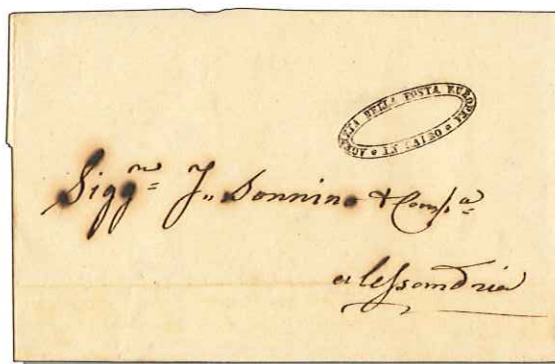 AGENZIA DELLA POSTA EUROPEA
* IN CAIRO *
Siggri J. Sonnino & Compa
Alessandria